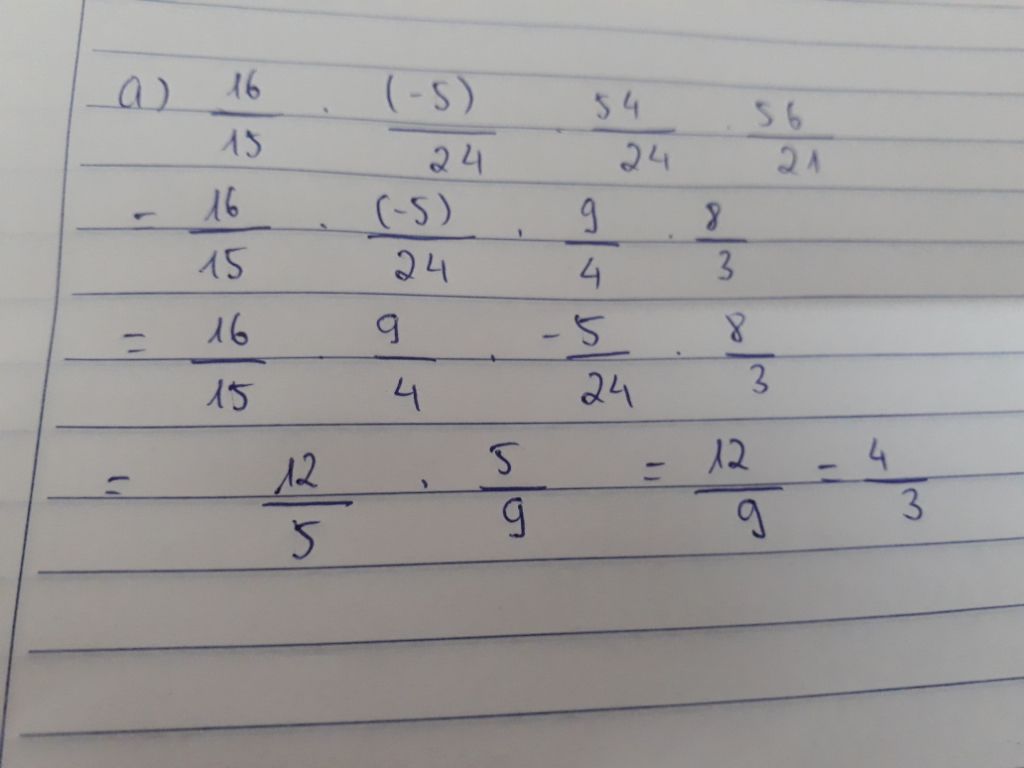 a) 16/15 · (-5)/24 · 54/24 · 56/21
= 16/15 · (-5)/24 · 9/4 · 8/3
= 16/15 · 9/4 · -5/24 · 8/3
= 12/5 · 5/9 = 12/9 = 4/3